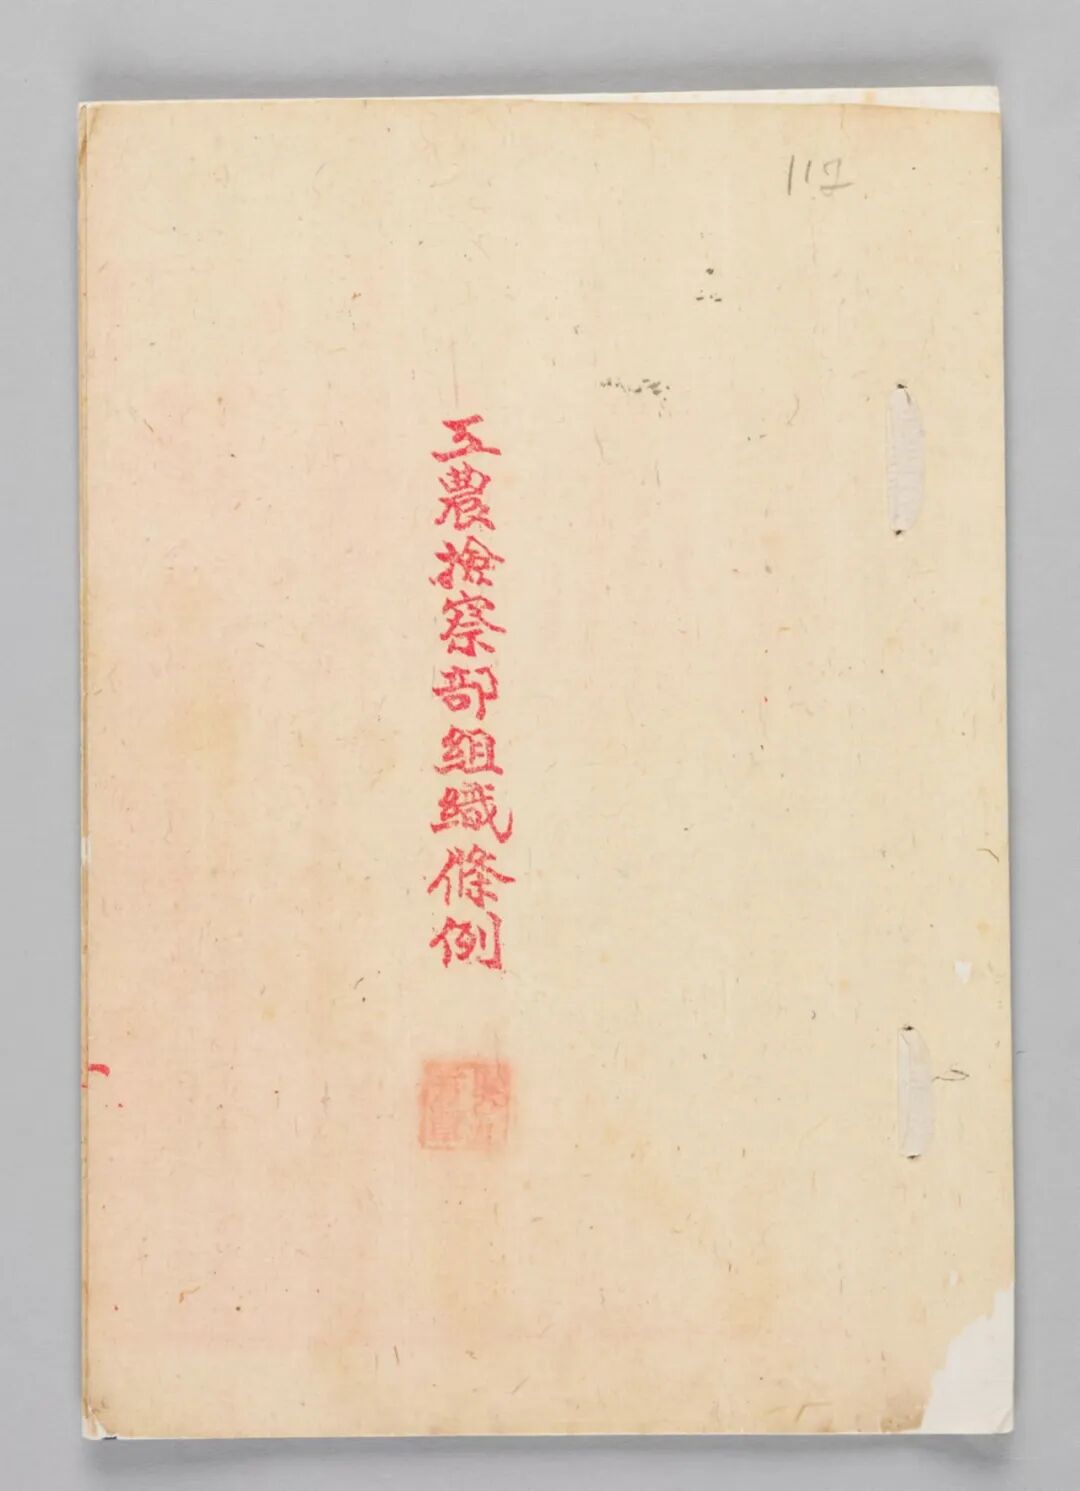 112
工農檢察部組織條例